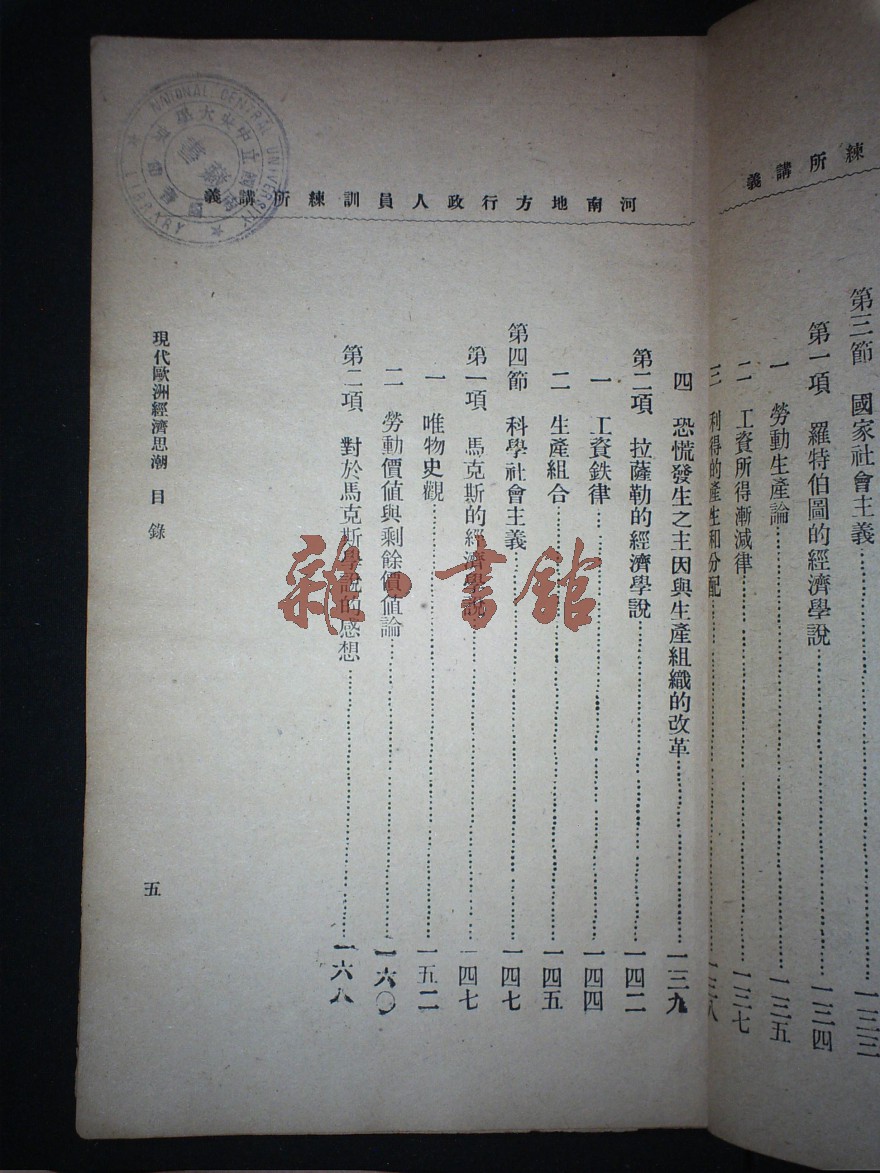 練所講義
第三節 國家社會主義……一三三
第一項 羅特伯圖的經濟學說……一三四
一 勞動生產論……一三五
二 工資所得漸減律……一三七
三 利得的產生和分配……一三八
河南地方行政人員訓練所講義
四 恐慌發生之主因與生產組織的改革……一三九
第二項 拉薩勒的經濟學說……一四二
一 工資鉄律……一四四
二 生產組合……一四五
第四節 科學社會主義……一四七
第一項 馬克斯的經濟學說……一四七
一 唯物史觀……一五二
二 勞動價值與剩餘價值論……一六〇
第二項 對於馬克斯學說的感想……一六八
現代歐洲經濟思潮 目錄
五
NATIONAL CENTRAL UNIVERSITY
LIBRARY
雜·書舘